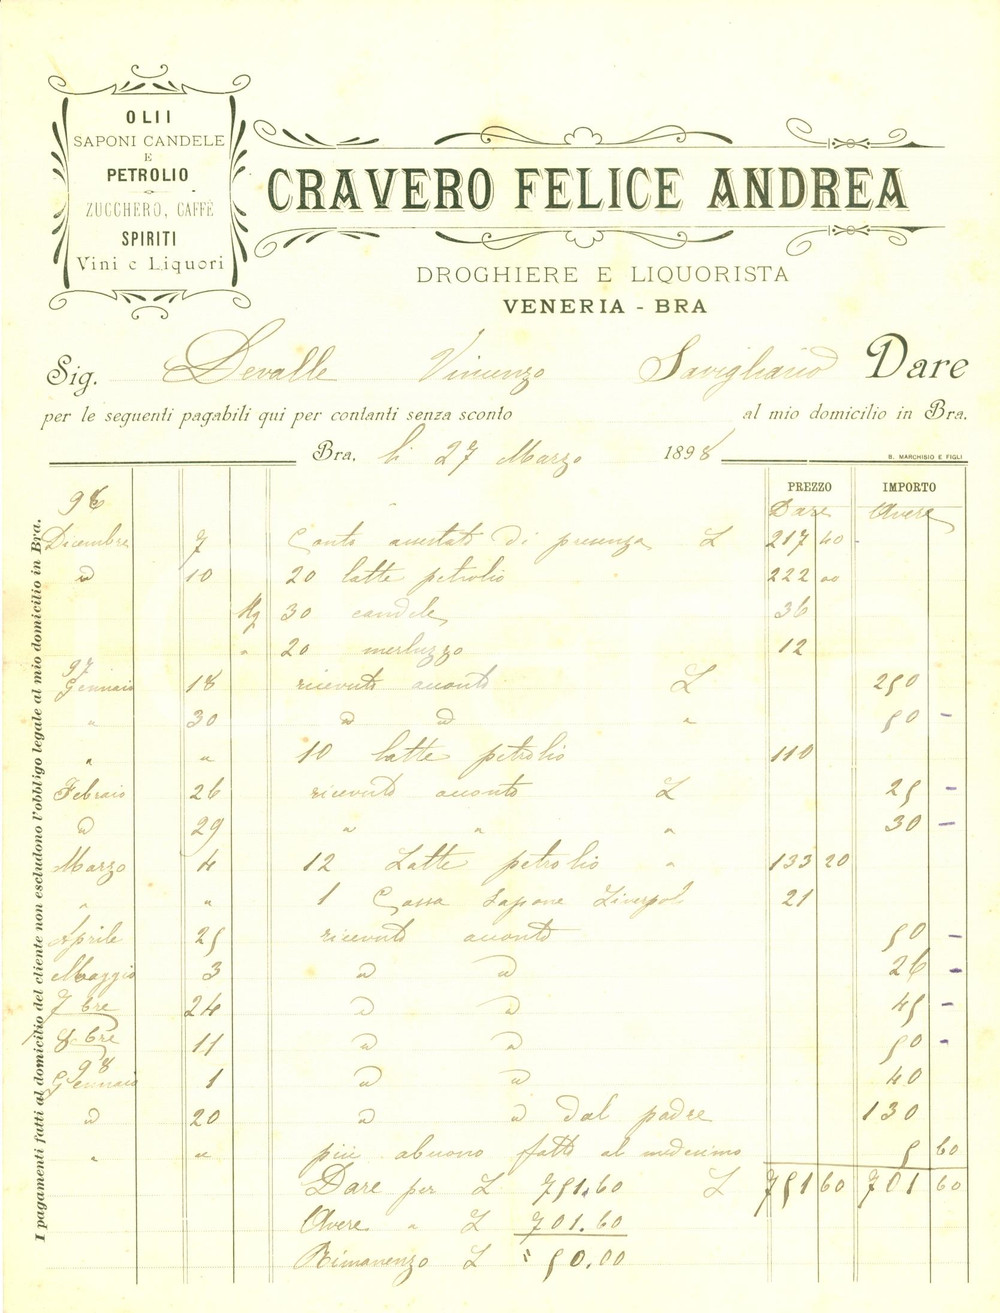 OLII
SAPONI CANDELE
E
PETROLIO
ZUCCHERO, CAFFÈ
SPIRITI
Vini e Liquori
CRAVERO FELICE ANDREA
DROGHIERE E LIQUORISTA
VENERIA - BRA
Sig. Devalle Vincenzo Savigliano Dare
per le seguenti pagabili qui per contanti senza sconto al mio domicilio in Bra.
Bra, li 27 Marzo 1898
B. MARCHISIO E FIGLI
PREZZO IMPORTO
96 Dare Avere
Dicembre 7 Conto di presenza L 217 40
" 10 20 latte petrolio 222 00
Mg 30 candele 36
" 20 merluzzo 12
97
Gennaio 18 ricevuto acconto L 250
" 30 " " " 50 -
" " 10 latte petrolio 110
Febraio 26 ricevuto acconto L 25 -
" 29 " " " 30 -
Marzo 4 12 Latte petrolio " 133 20
" " 1 Cassa Sapone Liverpol 21
Aprile 25 ricevuto acconto 50 -
Maggio 3 " " 26 -
7bre 24 " " 45 -
8bre 11 " " 50 -
98
Gennaio 1 " " 40
" 20 " " dal padre 130
" " più abuono fatto al medesimo 5 60
Dare per L 751.60 L 751 60 701 60
Avere " L 701.60
Rimanenzo L = 50.00
I pagamenti fatti al domicilio del cliente non escludono l'obbligo legale al mio domicilio in Bra.